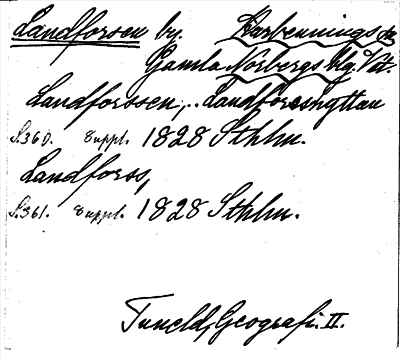 Landforsen by. Karbennings sn
Gamla Norbergs blg. Vstm.
Landforssen, Landforsshyttan
S. 360. Suppl. 1828 Sthlm.
Landforss,
S. 361. Suppl. 1828 Sthlm.
Tuneld, Geografi. II.